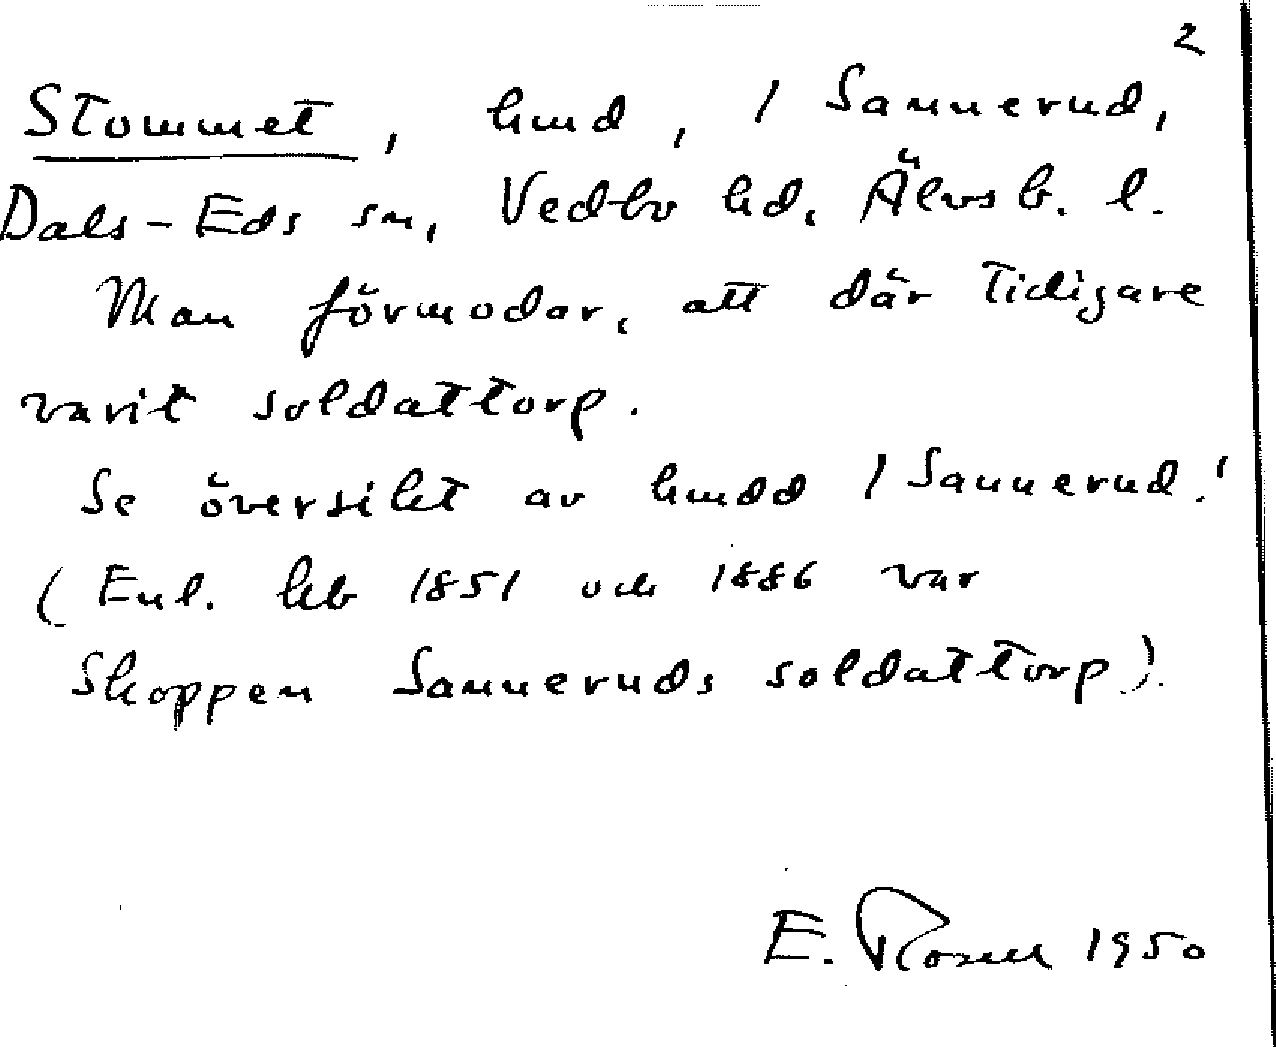 2
Stommet, hmd, 1 Sannerud,
Dals-Eds sn, Vedbo hd. Älvsb. l.
Man förmodar, att där tidigare
varit soldattorp.
Se översikt av hmdd 1 Sannerud!
(Enl. hb 1851 och 1886 var
Skoppen Sanneruds soldattorp).
E. Rosell 1950